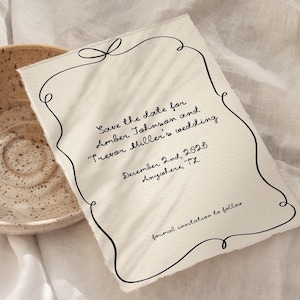 Save the date for
Amber Johnson and
Trevor Miller's wedding
December 2nd, 2026
Anywhere, TX
formal invitation to follow